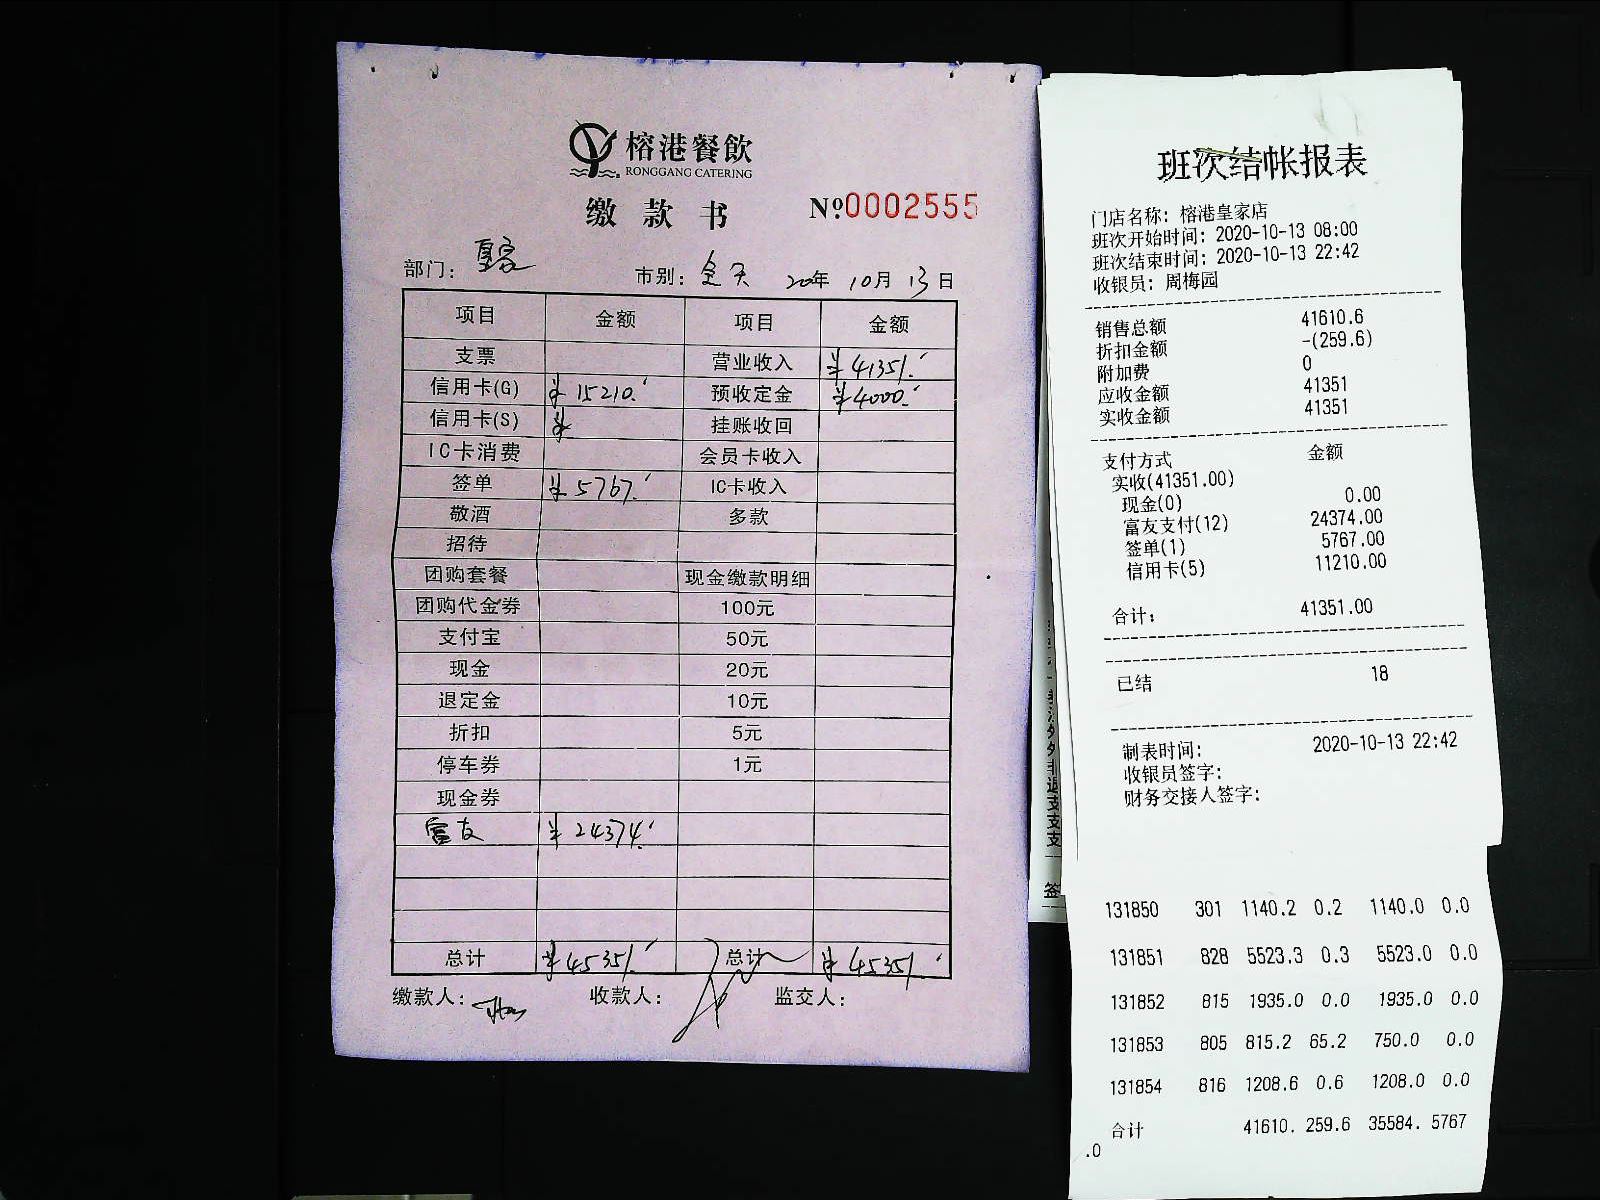 榕港餐飲
RONGGANG CATERING
缴款书 №0002555
部门：皇家 市别：全天 20年10月13日
项目 金额 项目 金额
支票 营业收入 ¥41351.
信用卡(G) ¥15210. 预收定金 ¥4000.
信用卡(S) ¥ 挂账收回
IC卡消费 会员卡收入
签单 ¥5767. IC卡收入
敬酒 多款
招待
团购套餐 现金缴款明细
团购代金券 100元
支付宝 50元
现金 20元
退定金 10元
折扣 5元
停车券 1元
现金券
富友 ¥24374.
总计 ¥45351. 总计 ¥45351.
缴款人： 收款人： 监交人：
班次结帐报表
门店名称: 榕港皇家店
班次开始时间: 2020-10-13 08:00
班次结束时间: 2020-10-13 22:42
收银员: 周梅园
销售总额 41610.6
折扣金额 -(259.6)
附加费 0
应收金额 41351
实收金额 41351
支付方式 金额
实收(41351.00)
现金(0) 0.00
富友支付(12) 24374.00
签单(1) 5767.00
信用卡(5) 11210.00
合计: 41351.00
已结 18
制表时间: 2020-10-13 22:42
收银员签字:
财务交接人签字:
131850 301 1140.2 0.2 1140.0 0.0
131851 828 5523.3 0.3 5523.0 0.0
131852 815 1935.0 0.0 1935.0 0.0
131853 805 815.2 65.2 750.0 0.0
131854 816 1208.6 0.6 1208.0 0.0
合计 41610. 259.6 35584. 5767
.0